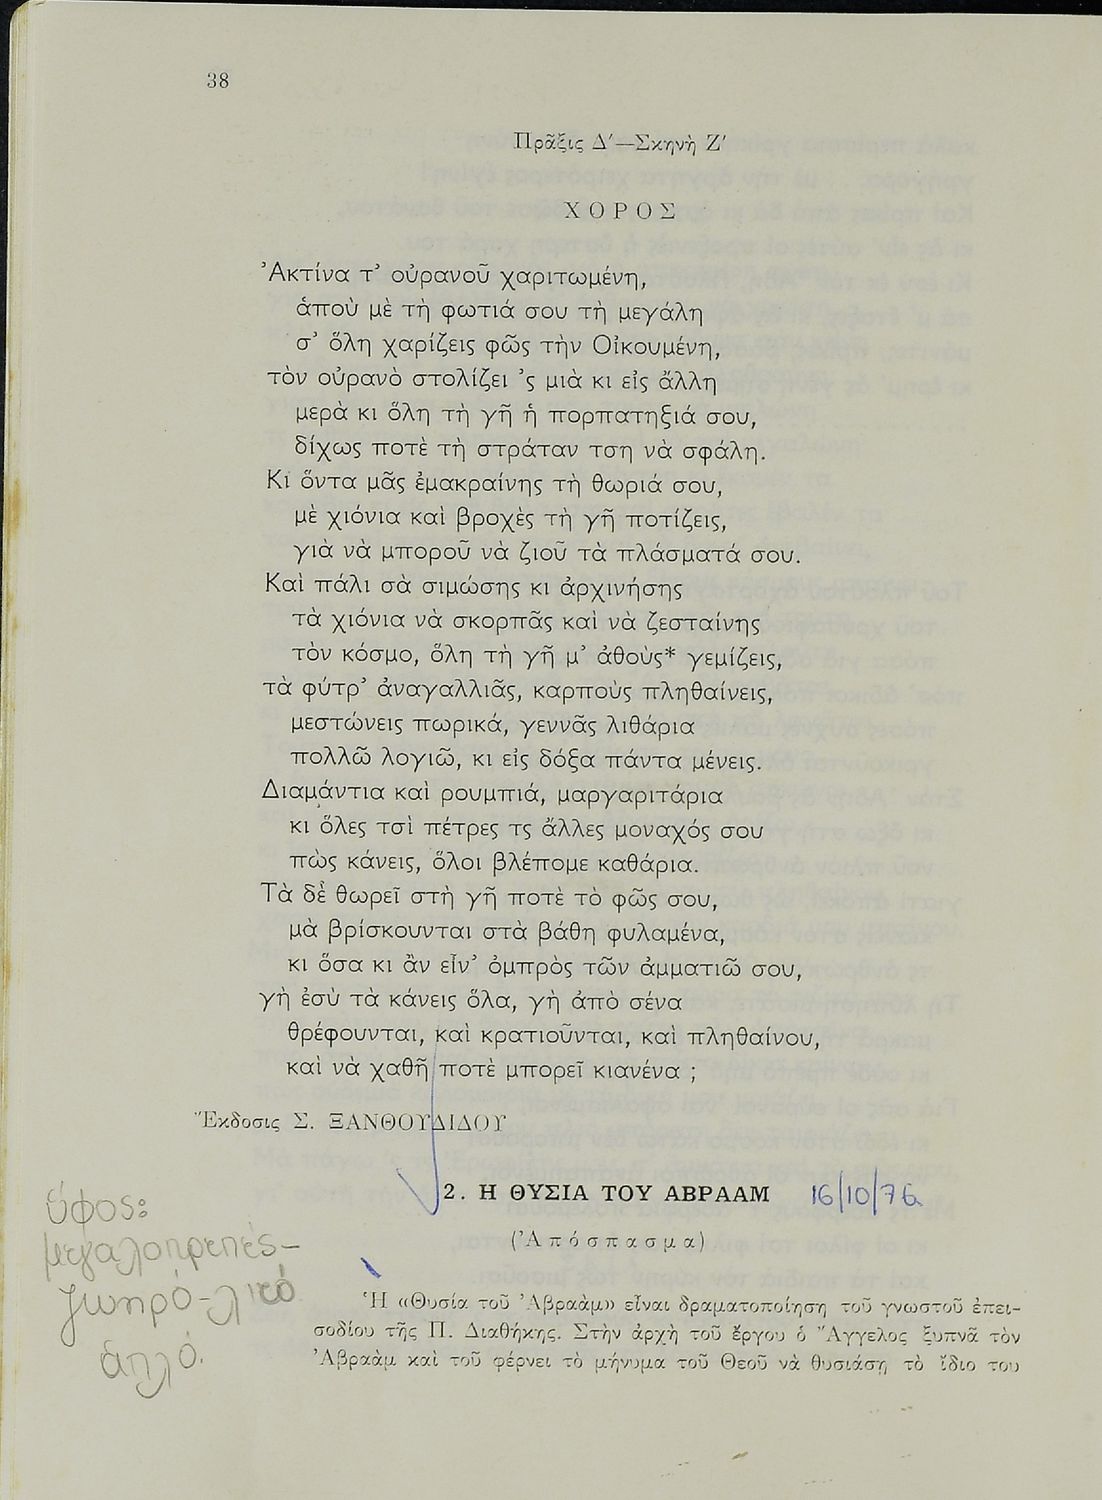 38
Πρᾶξις Δ′—Σκηνὴ Ζ′
ΧΟΡΟΣ
Ἀκτίνα τ᾽ οὐρανοῦ χαριτωμένη,
ἁποὺ μὲ τὴ φωτιά σου τὴ μεγάλη
σ᾽ ὅλη χαρίζεις φῶς τὴν Οἰκουμένη,
τὸν οὐρανὸ στολίζει ᾽ς μιὰ κι εἰς ἄλλη
μερὰ κι ὅλη τὴ γῆ ἡ πορπατηξιά σου,
δίχως ποτὲ τὴ στράταν τση νὰ σφάλη.
Κι ὅντα μᾶς ἐμακραίνης τὴ θωριά σου,
μὲ χιόνια καὶ βροχὲς τὴ γῆ ποτίζεις,
γιὰ νὰ μποροῦ νὰ ζιοῦ τὰ πλάσματά σου.
Καὶ πάλι σὰ σιμώσης κι ἀρχινήσης
τὰ χιόνια νὰ σκορπᾶς καὶ νὰ ζεσταίνης
τὸν κόσμο, ὅλη τὴ γῆ μ᾽ ἀθοὺς* γεμίζεις,
τὰ φύτρ᾽ ἀναγαλλιᾶς, καρποὺς πληθαίνεις,
μεστώνεις πωρικά, γεννᾶς λιθάρια
πολλῶ λογιῶ, κι εἰς δόξα πάντα μένεις.
Διαμάντια καὶ ρουμπιά, μαργαριτάρια
κι ὅλες τσὶ πέτρες τς ἄλλες μοναχός σου
πὼς κάνεις, ὅλοι βλέπομε καθάρια.
Τὰ δὲ θωρεῖ στὴ γῆ ποτὲ τὸ φῶς σου,
μὰ βρίσκουνται στὰ βάθη φυλαμένα,
κι ὅσα κι ἂν εἶν᾽ ὀμπρὸς τῶν ἀμματιῶ σου,
γὴ ἐσὺ τὰ κάνεις ὅλα, γὴ ἀπὸ σένα
θρέφουνται, καὶ κρατιοῦνται, καὶ πληθαίνου,
καὶ νὰ χαθῆ ποτὲ μπορεῖ κιανένα ;
Ἔκδοσις Σ. ΞΑΝΘΟΥΔΙΔΟΥ
2. Η ΘΥΣΙΑ ΤΟΥ ΑΒΡΑΑΜ 16/10/76
(Ἀπόσπασμα)
ὕφος:
μεγαλοπρεπές-
ζωηρό-λιτό
ἁπλό.
Ἡ «Θυσία τοῦ Ἀβραὰμ» εἶναι δραματοποίηση τοῦ γνωστοῦ ἐπει-
σοδίου τῆς Π. Διαθήκης. Στὴν ἀρχὴ τοῦ ἔργου ὁ Ἄγγελος ξυπνᾶ τὸν
Ἀβραὰμ καὶ τοῦ φέρνει τὸ μήνυμα τοῦ Θεοῦ νὰ θυσιάση τὸ ἴδιο του